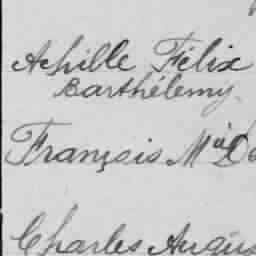 Achille Félix
Barthélemy
François M
Charles